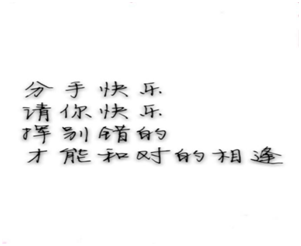 分手快乐
请你快乐
挥别错的
才能和对的相逢